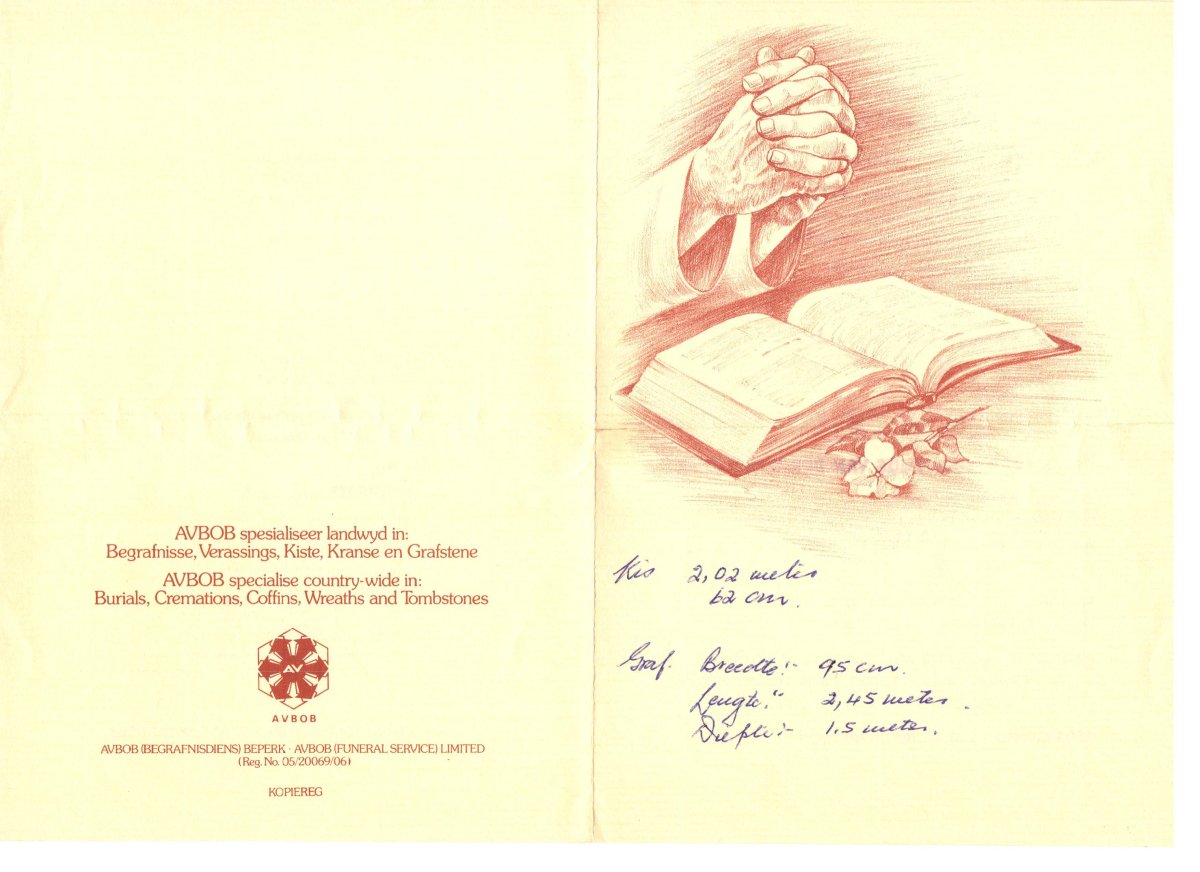 AVBOB spesialiseer landwyd in:
Begrafnisse, Verassings, Kiste, Kranse en Grafstene
AVBOB specialise country-wide in:
Burials, Cremations, Coffins, Wreaths and Tombstones
AV
AVBOB
AVBOB (BEGRAFNISDIENS) BEPERK · AVBOB (FUNERAL SERVICE) LIMITED
(Reg. No. 05/20069/06)
KOPIEREG
Kis 2,02 meter
62 cm.
Graf. Breedte:- 95 cm.
Lengte:" 2,45 meter.
Diepte:- 1.5 meter.